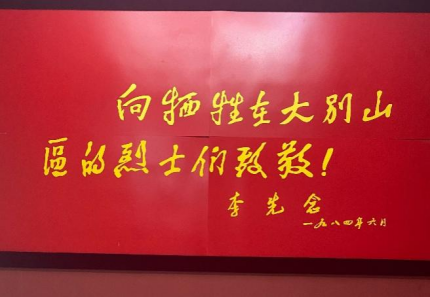 向牺牲在大别山
區的烈士们致敬!
李先念
一九八四年六月